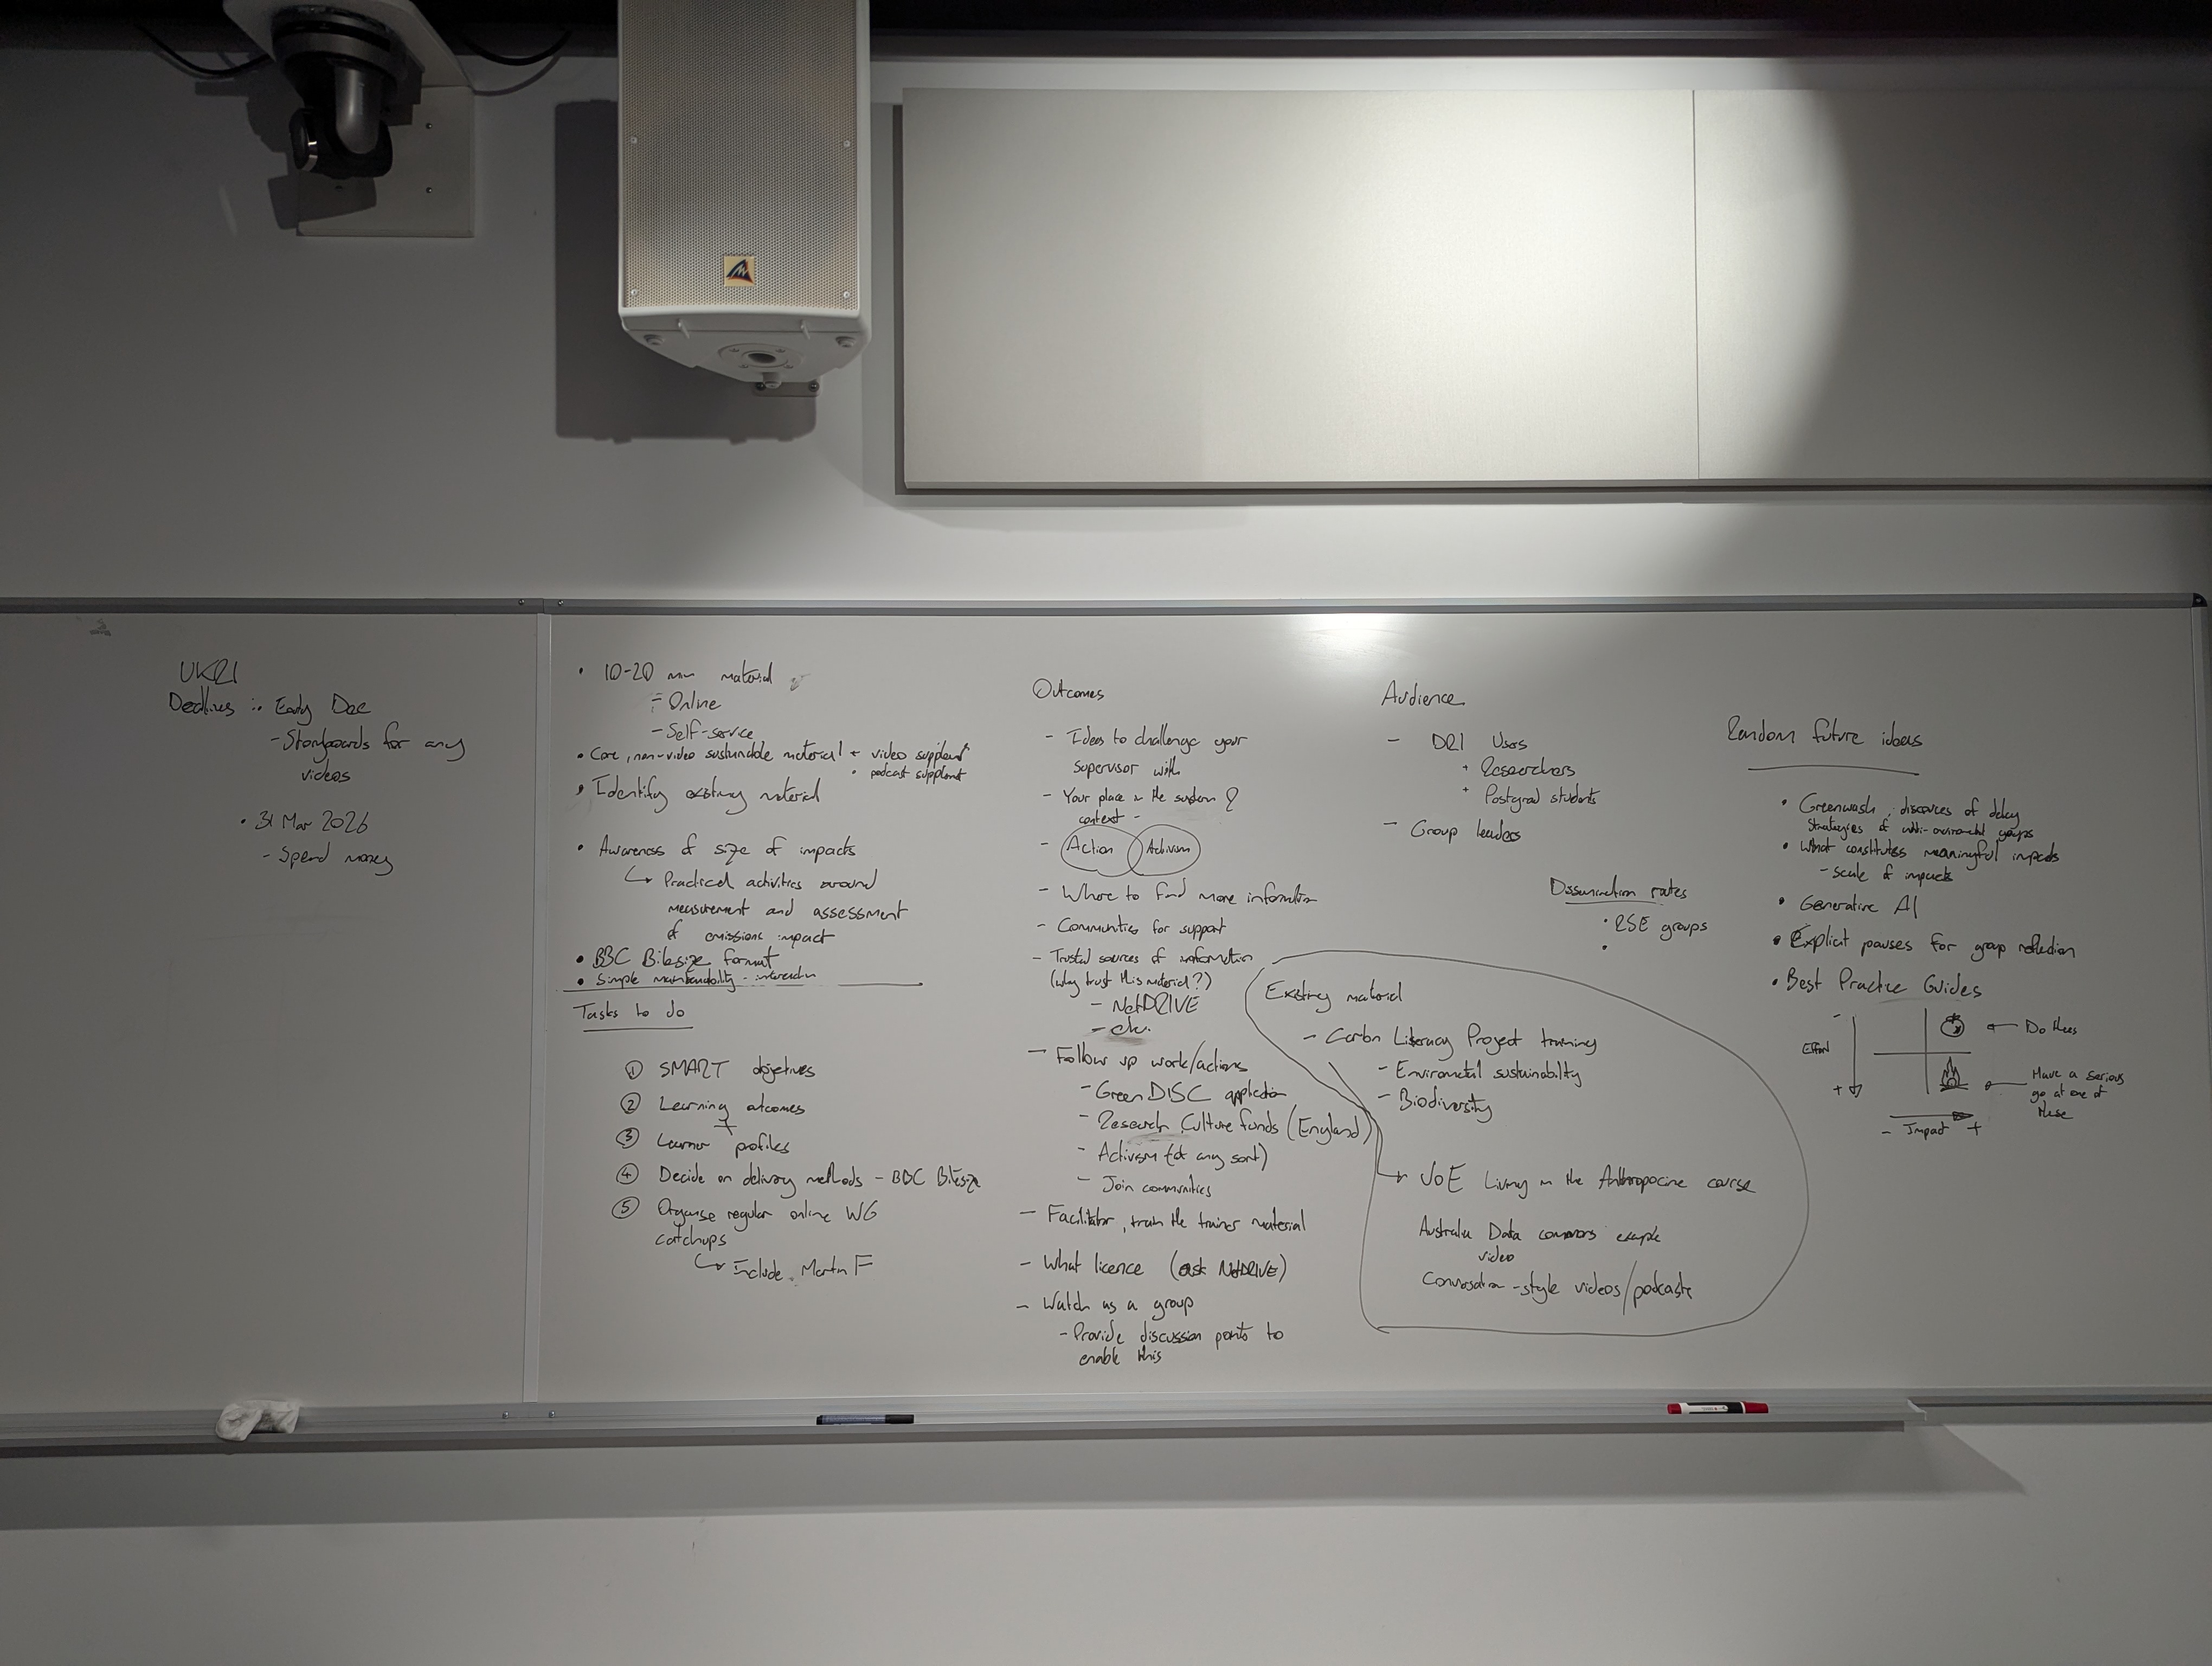 UKRI
Deadlines : • Early Dec
- Storyboards for any
videos
• 31 Mar 2026
- Spend money
• 10-20 min material
- Online
- Self-service
• Core, non-video sustainable material + video supplement
• podcast supplement
• Identify existing material
• Awareness of size of impacts
↳ Practical activities around
measurement and assessment
of emissions impact
• BBC Bitesize format
• Simple maintainability - interaction
Tasks to do
① SMART objetives
② Learning outcomes
③ Learner profiles
④ Decide on delivery methods - BBC Bitesize
⑤ Organise regular online WG
catchups
↳ Include Martin F
Outcomes
- Ideas to challenge your
supervisor with
- Your place in the system &
context -
- Action Activism
- Where to find more information
- Communities for support
- Trusted sources of information
(why trust this material?)
- NetDRIVE
- etc.
- Follow up work/actions
- Green DISC application
- Research Culture funds (England)
- Activism (of any sort)
- Join communities
- Facilitator, train the trainer material
- What licence (ask NetDRIVE)
- Watch as a group
- Provide discussion points to
enable this
Audience
- DRI Users
• Researchers
• Postgrad students
- Group leaders
Dissemination routes
• RSE groups
•
Existing material
- Carbon Literacy Project training
- Enviromental sustainability
- Biodiversity
→ UoE Living in the Anthropocine course
Australia Data commons example
video
Conversation-style videos/podcasts
Random future ideas
• Greenwash, discources of delay
Strategies of anti-enviromental groups
• What constitutes meaningful impacts
- scale of impacts
• Generative AI
• Explicit pauses for group reflection
• Best Practice Guides
-
Effort
+
← Do these
← Have a serious
go at one of
these
- Impact +